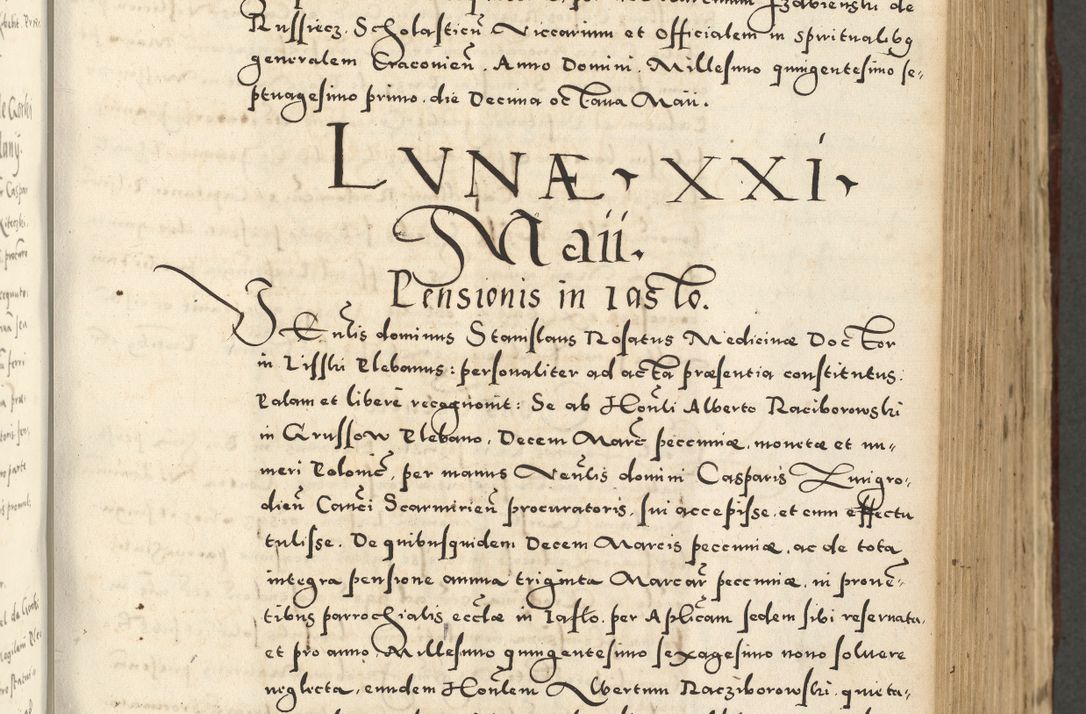 Russiecz. Scholasticū Viccarium et Officialem in spiritualibꝯ
generalem Craconieñ. Anno Domini. Millesimo quingentesimo se-
ptuagesimo primo. die Decima octaua Maii.
LVNÆ. XXI.
Maii.
Pensionis in Iaslo.
Veñlis dominus Stanislaus Rosatus Medicinæ Doctor
in Lisski Plebanus: personaliter ad acta præsentia constitutus.
Palam et liberè recognouit: Se ab Hoñli Alberto Raciborowski
in Grussow Plebano. Decem Marc̃ peccuniæ. monetæ et nu-
meri Polonic̃. per manus Veñlis domini Casparis Zmigro-
dieñ Canci Scarmirieñ procuratoris. sui accepisse. et cum effectu
tulisse. De quibusquidem Decem Marcis peccuniæ. ac de tota
integra pensione annua triginta Marcar̃ peccuniæ. in prouē-
tibus parrochialis eccłæ in Iasło. per Aplicam sedem sibi reseruata.
et pro anno Millesimo quingentesimo sexagesimo nono soluere
neglecta. eundem Hoñlem Albertum Racziborowski. quieta-